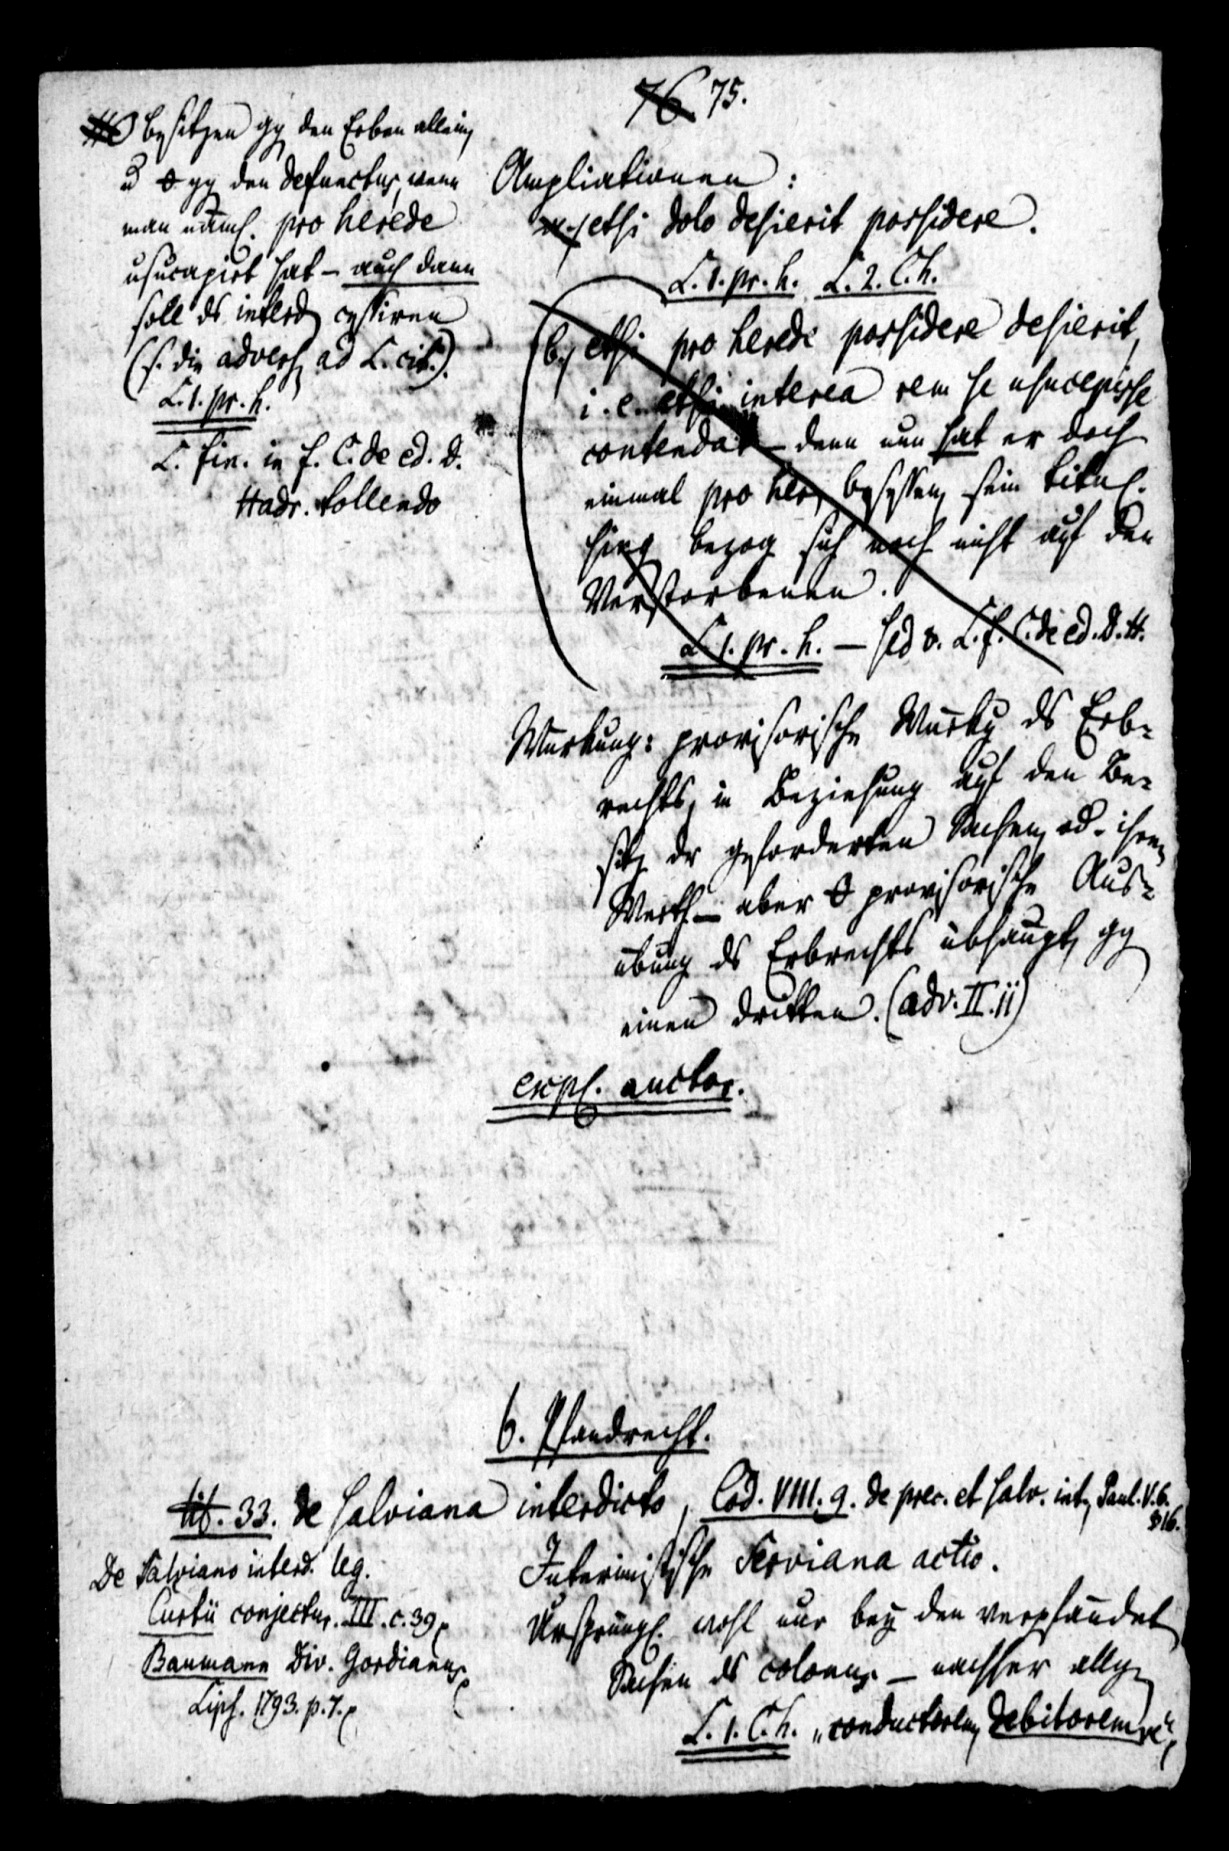 76 75.
besitzen gg den Erben allein,
u. gg den defunctus, wenn
man näml. pro herede
usucapirt hat – auch dann
soll ds interd. cessiren
(s. die advers. ad L. cit.).
L. 1. pr. h.
L. fin. in f. C. de ed. d.
Hadr. tollendo
Ampliationen:
a.) etsi dolo desierit possidere.
L. 1. pr. h. L. 2. C. h.
b.) etsi pro herede possidere desierit,
i. e. etsi interea rem se usucepisse
contendat – denn nun hat er doch
einmal pro her. besessen, sein titul.
hing bezog sich noch nicht auf den
Verstorbenen.
L. 1. pr. h. – sed v. L. f. C. de ed. D. H.
Wirkung: provisorische Wirkg ds Erb-
rechts, in Beziehung auf den Be-
sitz dr geforderten Sachen, od. ihren
Werth – aber provisorische Aus-
übung ds Erbrechts übhaupt, gg
einen dritten. (adv. II. 11)
expl. auctor.
6. Pfandrecht.
tit. 33. de salviano interdicto, Cod. VIII. 9. de prec. et salv. int., Paul. V. 6.
§ 16.
De Salviano interd. leg.
Curtii conjectur. III. c. 39,
Baumann Div. Gordianus
Lips. 1793. p. 7.
Interimistische Serviana actio.
Ursprüngl. wohl nur bey den verpfändet
Sachen ds colonus – nachher allg.
L. 1. C. h. „conductorem, debitoremve"